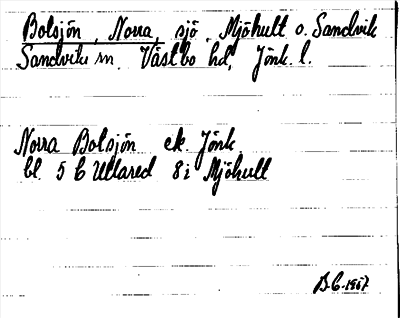 Bolsjön, Norra, sjö, Mjöhult o. Sandvik
Sandviks sn. Västbo hd, Jönk. l.
Norra Bolsjön ek. Jönk.
bl. 5 C Ullared 8 i Mjöhult
B.C. 1967